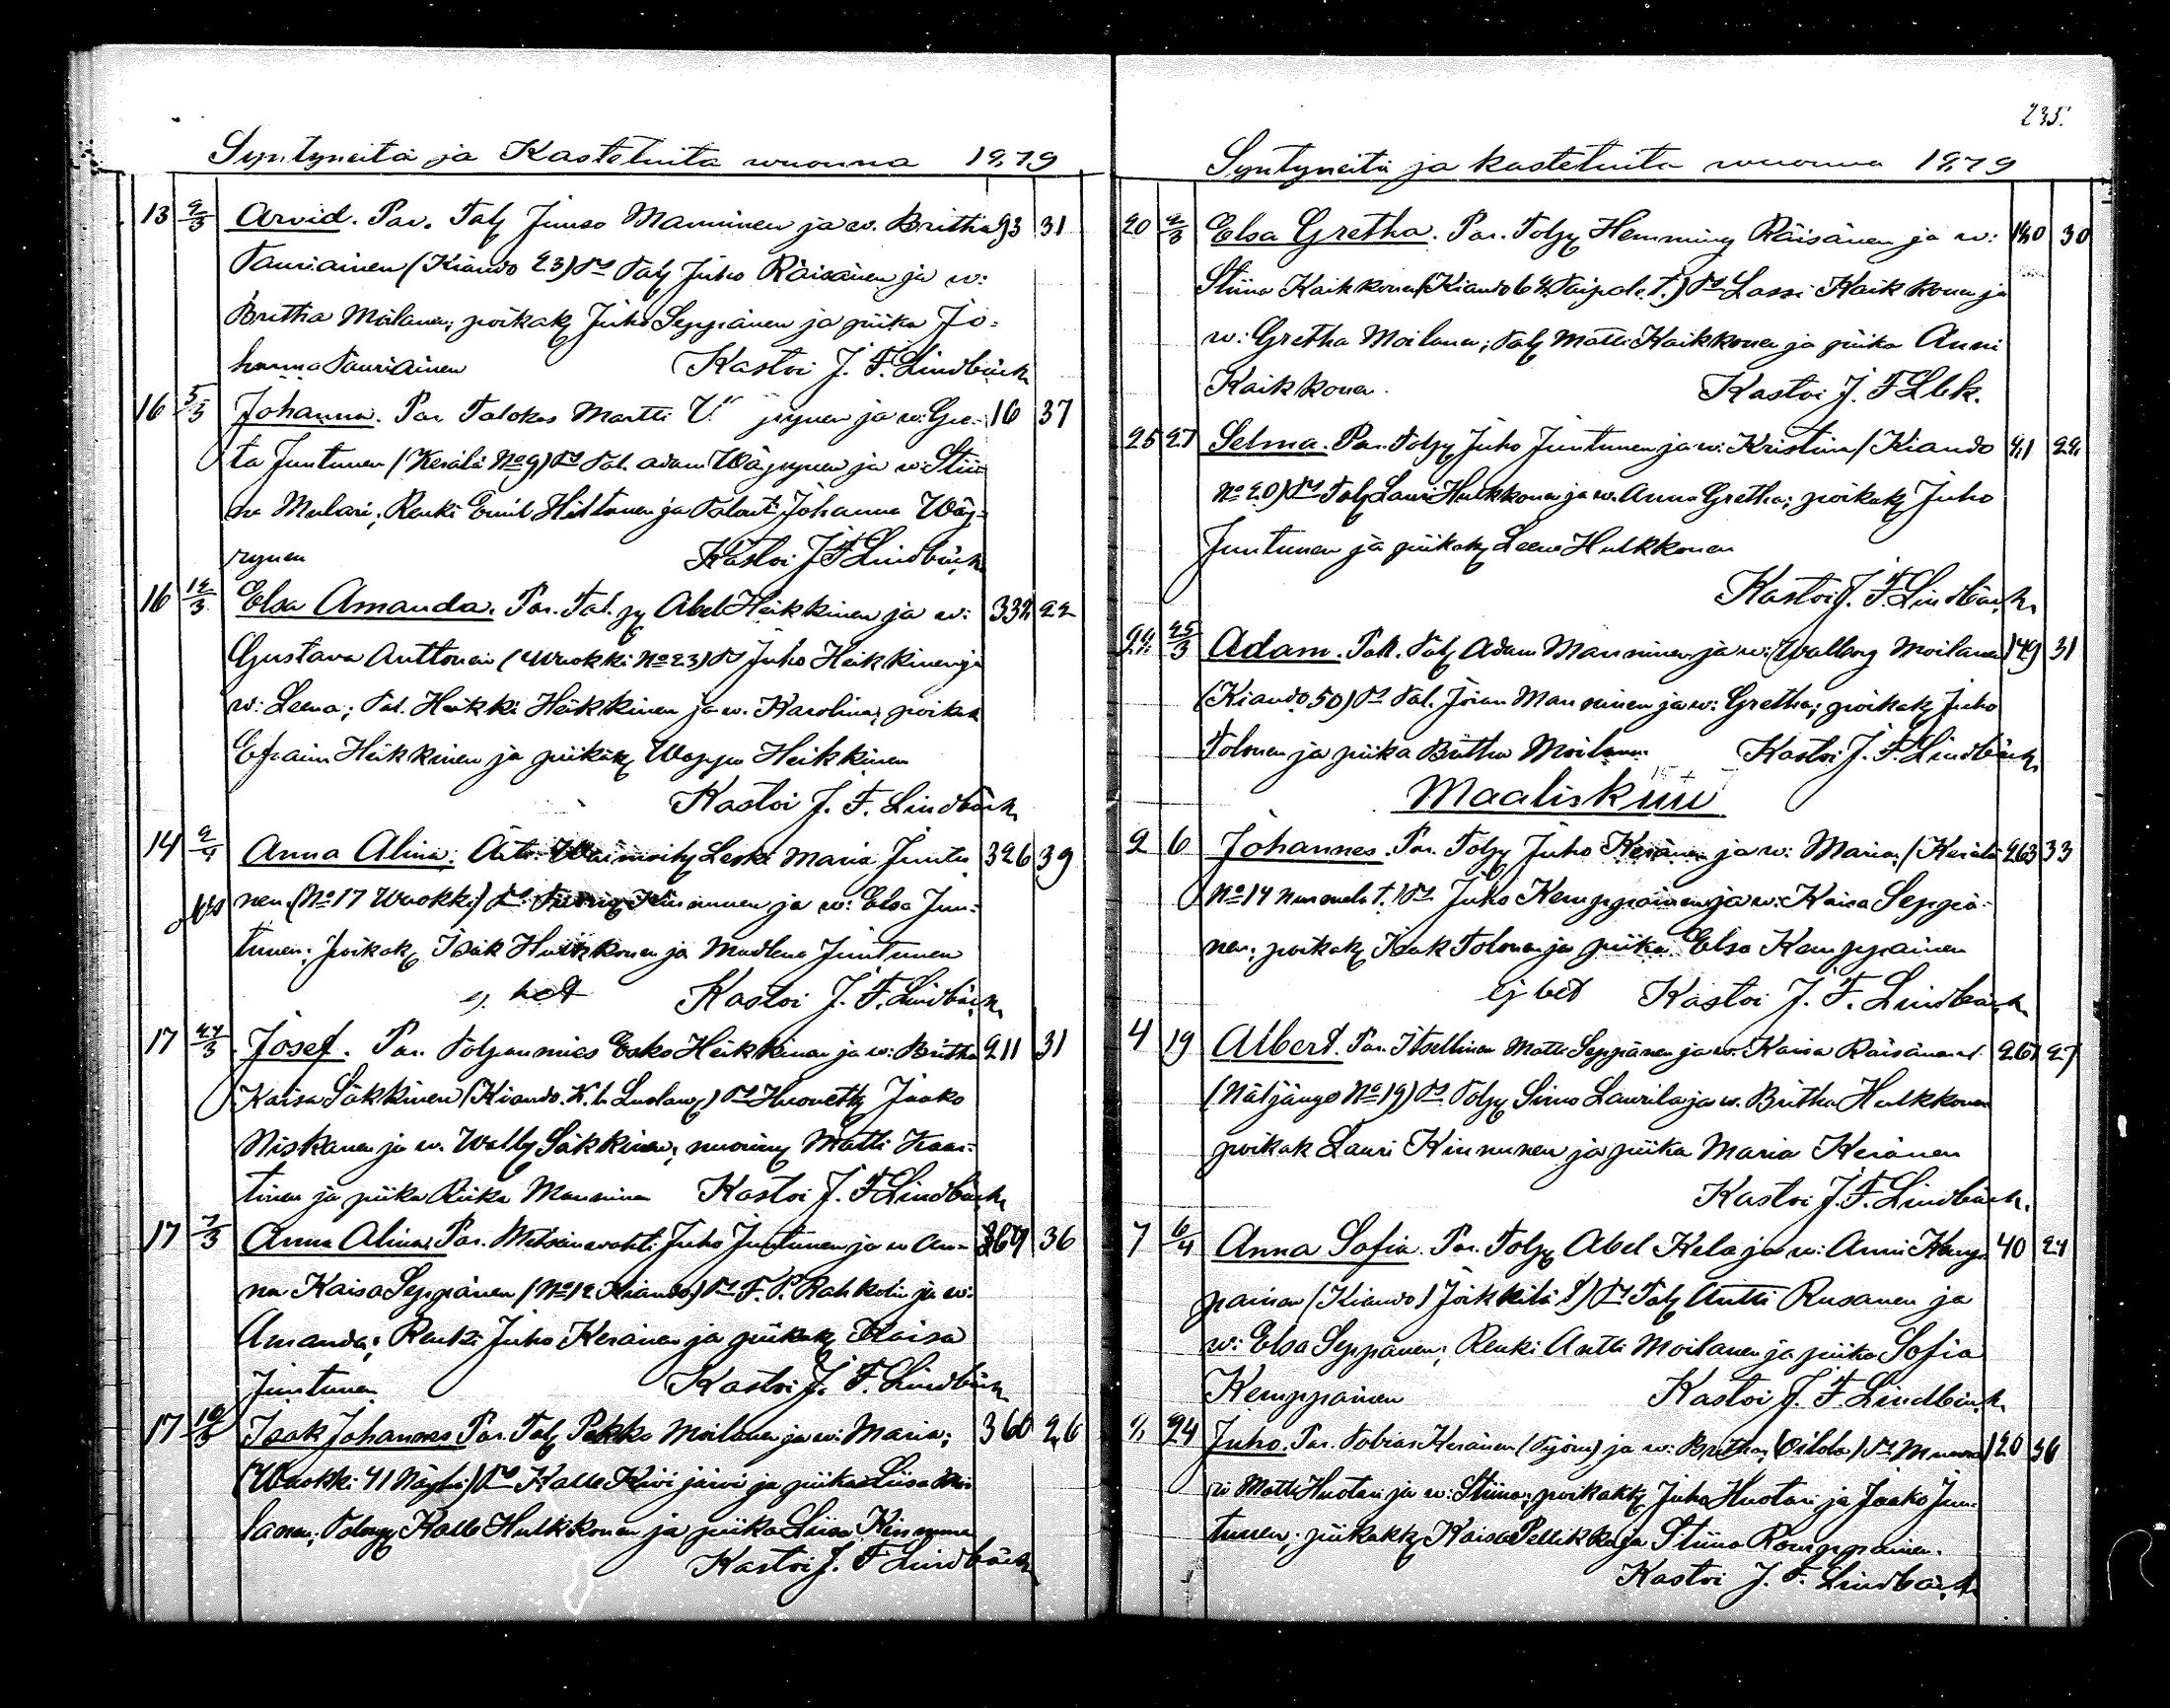 Syntyneitä ja Kastetuita wuonna 1879
13 2/3 Arvid. Par. Talj Juuso Manninen ja w. Britha 93 31
Tauriainen (Kiando 23) T Talj Juho Räisänen ja w:
Britha Moilanen; poikak Juho Seppänen ja piika Jo-
hanna Tauriainen Kastoi J. F. Lindbäck
16 5/3 Johanna. Par. Talokas Martti ja w: Gre- 16 37
ta Juntunen (Kerälä No 9) T Tal. Adam Wäyrynen ja w: Stii-
na Mulari; Renki Emil Hiltunen ja Johanna Wäy-
rynen Kastoi J F Lindbäck
16 12/3 Elsa Amanda. Par. Tal. Abel Heikkinen ja w: 332 22
Gustava Anttonen (Wuokki No 23) T Juho Heikkinen ja
w: Leena; Tal. Heikki Heikkinen ja w. Karolina; poikak
Efraim Heikkinen ja piikak Wappu Heikkinen
Kastoi J. F. Lindbäck
14 2/4 Anna Alina; Äiti Leski Maria Juntu- 326 39
nen (No 17 Wuokki) Kinnunen ja w: Elsa Jun-
tunen; poikak Isak Hulkkonen ja Madlena Juntunen
ej bet Kastoi J. F. Lindbäck
17 24/3 Josef. Par. Esko Heikkinen ja w: Britha 211 31
Kaisa Säkkinen (Kiando. ) T Jaako
Niskanen ja w. Walb Säkkinen; nuorimj Matti
tinen ja piika Riika Manninen Kastoi J. F. Lindbäck
17 7/3 Anna Alina. Par. Metsänwahti Juho Juntunen ja w An- 369 36
na Kaisa Seppänen (No 12 Kiando) T F. P. Rahkolin ja w:
Amanda; Renki Juho Keränen ja piikak Kaisa
Juntunen Kastoi J. F. Lindbäck
17 10/3 Isak Johannes Par. Talj Pekka Moilanen ja w: Maria; 360 26
(Wuokki 41 ) T Kalle Kiwijärwi ja piika Liisa Moi-
lanen; Kalle Hulkkonen ja piika Liisa Kinnunen
Kastoi J. F. Lindbäck
235.
Syntyneitä ja kastetuita wuonna 1879
20 2/3 Elsa Gretha. Par. Talj Hemming Räisänen ja w: 180 30
Stiina Kaikkonen (Kiando 64 Taipale t.) T Lassi Kaikkonen ja
w: Gretha Moilanen; Talj Matti Kaikkonen ja piika Anni
Kaikkonen. Kastoi J. F Lbk.
25 27 Selma. Par. Talj Juho Juntunen ja w: Kristina (Kiando 41 22
No 20) T Talj Lauri Hulkkonen ja w. Anna Gretha; poikak Juho
Juntunen ja piikak Leena Hulkkonen
Kastoi J. F. Lindbäck
24 25/3 Adam. Par. Talj Adam Manninen ja w: Walborg Moilanen 149 31
(Kiando 50) T Tal. Manninen ja w: Gretha; poikak Juho
Tolonen ja piika Britha Moilanen Kastoi J. F. Lindbäck
Maaliskuu
2 6 Johannes. Par. Talj Juho Keränen ja w: Maria; (Kerälä 263 33
No 14 t.) T Juho Kemppainen ja w: Kaisa Seppä-
nen; poikak Isak Tolonen ja piika Elsa Kemppainen
ej bet Kastoi J. F. Lindbäck
4 19 Albert. Par. Itsellinen Matti Seppänen ja w. Kaisa Räisänen 267 27
(Näljänge No 19) T Talj Simo Laurila ja w. Britha Hulkkonen
poikak Lauri Kinnunen ja piika Maria Keränen
Kastoi J. F. Lindbäck.
7 6/4 Anna Sofia. Par. Talj Abel Kela ja w: Anni Kemp- 40 24
painen (Kiando) T Talj Antti Rusanen ja
w: Elsa Seppänen; Renki Antti Moilanen ja piika Sofia
Kemppainen Kastoi J. F. Lindbäck
9 24 Juho. Par. Tobias Keränen ja w: Britha; T 120 36
ri Matti Huotari ja w: Stiina; poikakk Juho Huotari ja Jaako Jun-
tunen; piikakk Kaisa Pellikka ja Stiina Romppainen.
Kastoi J. F. Lindbäck